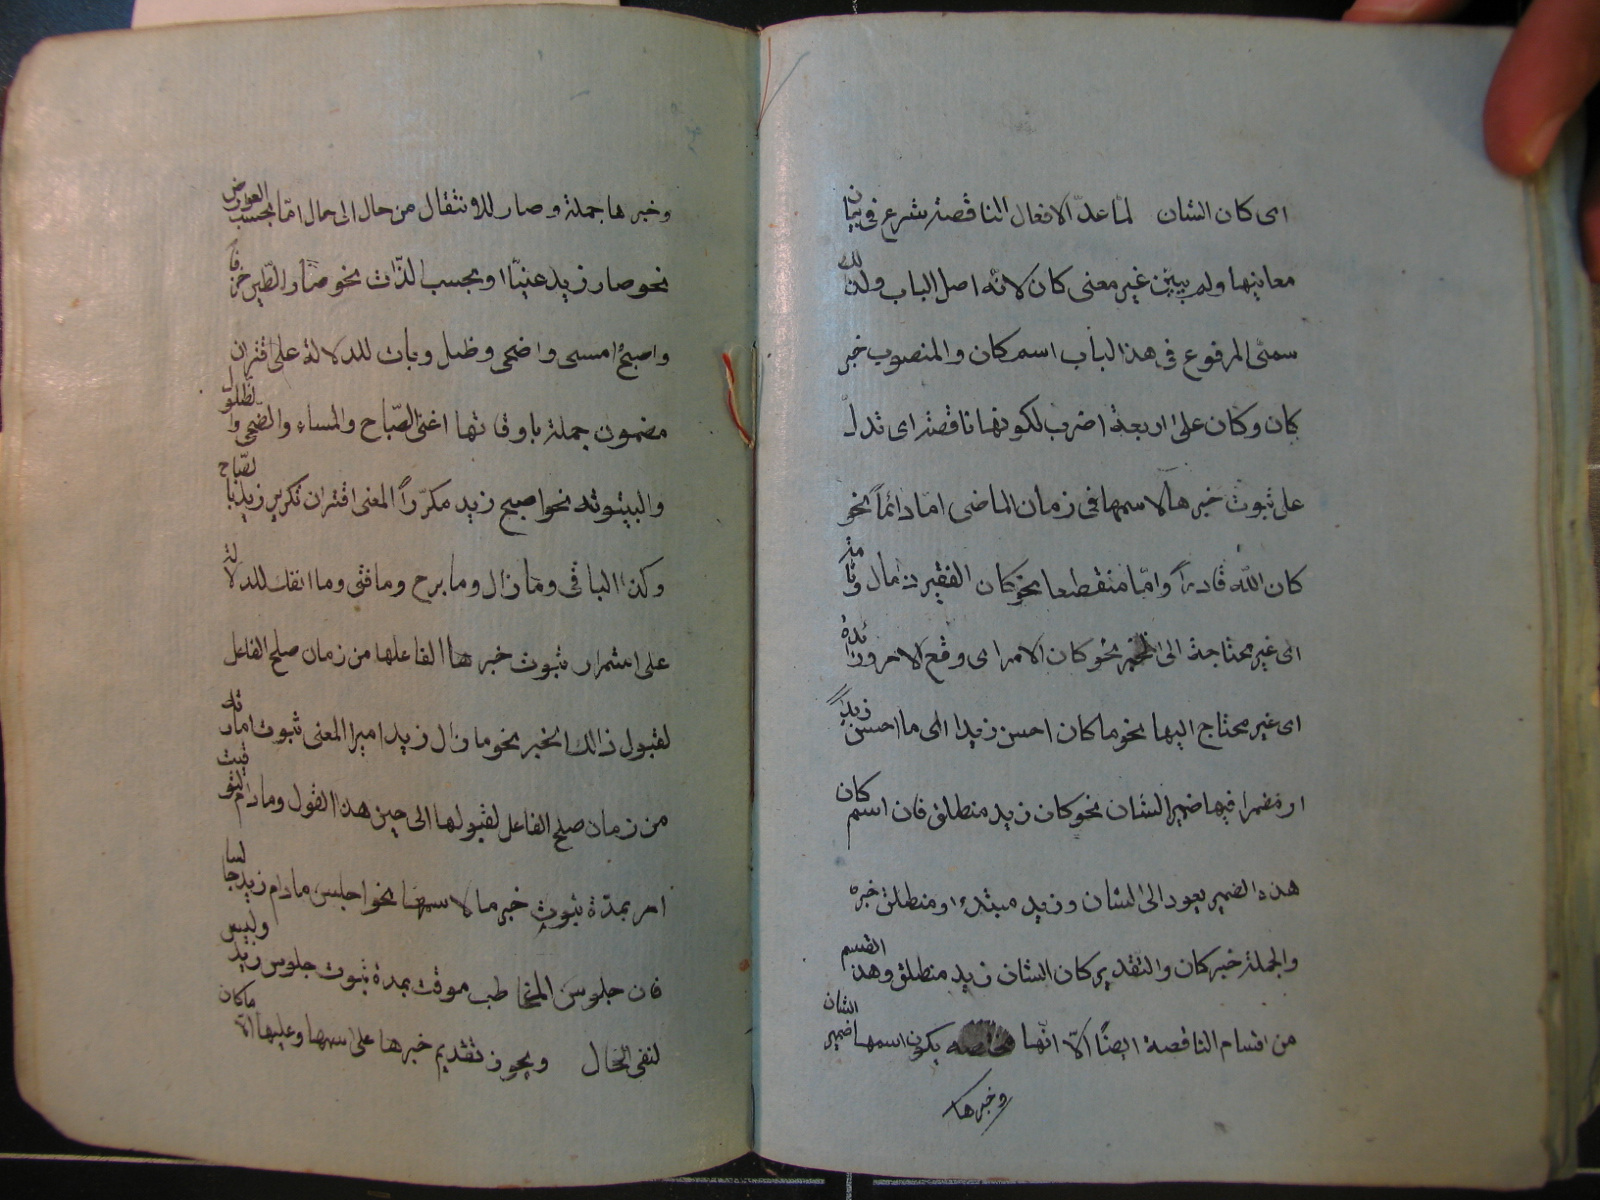 اى كان الشان لما عدّ الافعال الناقصة شرع فى بيان
معانيها ولم يبيّن غير معنى كان لانّه اصل الباب ولذلك
سمّى المرفوع فى هذا الباب اسم كان والمنصوب خبر
كان وكان على اربعة اضرب لكونها ناقصة اى تدلّ
على ثبوت خبرها لاسمها فى زمان الماضى امّا دائماً نحو
كان اللّٰه قادراً وامّا منقطعا نحو كان الفقير ذا مال وتامّة
اى غير محتاجة الى الخبر نحو كان الامر اى وقع الامر وزائدة
اى غير محتاج اليها نحو ما كان احسن زيدا اى ما احسن زيداً
او مضمرا فيها ضمير الشان نحو كان زيد منطلق فان اسم كان
هذه الضمير يعود الى الشان وزيد مبتدء و منطلق خبره
والجملة خبر كان والتقدير كان الشان زيد منطلق وهذا القسم
من اقسام الناقصة ايضًا الّا انّها يكون اسمها ضمير الشان
وخبرها
وخبرها جملة وصار للانتقال من حال الى حال امّا بحسب العوارض
نحو صار زيد غنيّا او بحسب الذّات نحو صار الطّين خزفاً
واصبح امسى واضحى وظل وبات للدلالة على اقتران
مضمون جملة باوقاتها اعنى الصّباح والمساء والضّحى والظلول
والبيتوته نحو اصبح زيد مكرّراً المعنى اقتران تكرير زيد بالصّباح
وكذا الباقى وما زال وما برح وما فتى وما انفك للدلالة
على استمرار ثبوت خبرها الفاعلها من زمان صلح الفاعل
لقبول ذالك الخبر نحو ما زال زيد اميرا المعنى ثبوت امارته
من زمان صلح الفاعل لقبولها الى حين هذا القول ومادام لتوقيت
امر بمدّة ثبوت خبرها لاسمها نحو اجلس مادام زيد جالسا
فان جلوس المخاطب موقت بمدة ثبوت جلوس زيد وليس
لنفى الحال ويجوز تقديم خبرها على اسمها وعليها الّا ما كان